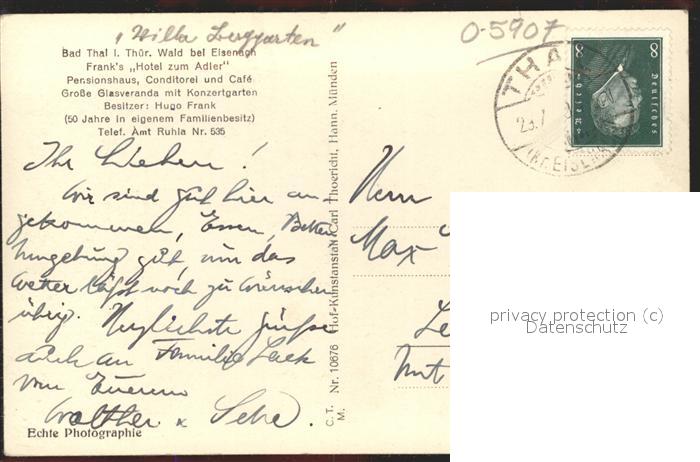 "Villa Berggarten"
O-5907
Bad Thal i. Thür. Wald bei Eisenach
Frank's „Hotel zum Adler"
Pensionshaus, Conditorei und Café
Große Glasveranda mit Konzertgarten
Besitzer: Hugo Frank
(50 Jahre in eigenem Familienbesitz)
Telef. Amt Ruhla Nr. 535
8 8
Deutsches
THAL
Ihr Lieben!
Wir sind gut hier an-
gekommen, Essen, Betten
Umgebung gut, nur das
Wetter läßt noch zu wünschen
übrig. Herzlichste Grüße
auch an Familie
von Eueren
Walther
Echte Photographie
C. T. M. Nr. 10676 Hof-Kunstanstalt Carl Thoericht, Hann. Münden
Herrn
Max
privacy protection (c)
Datenschutz